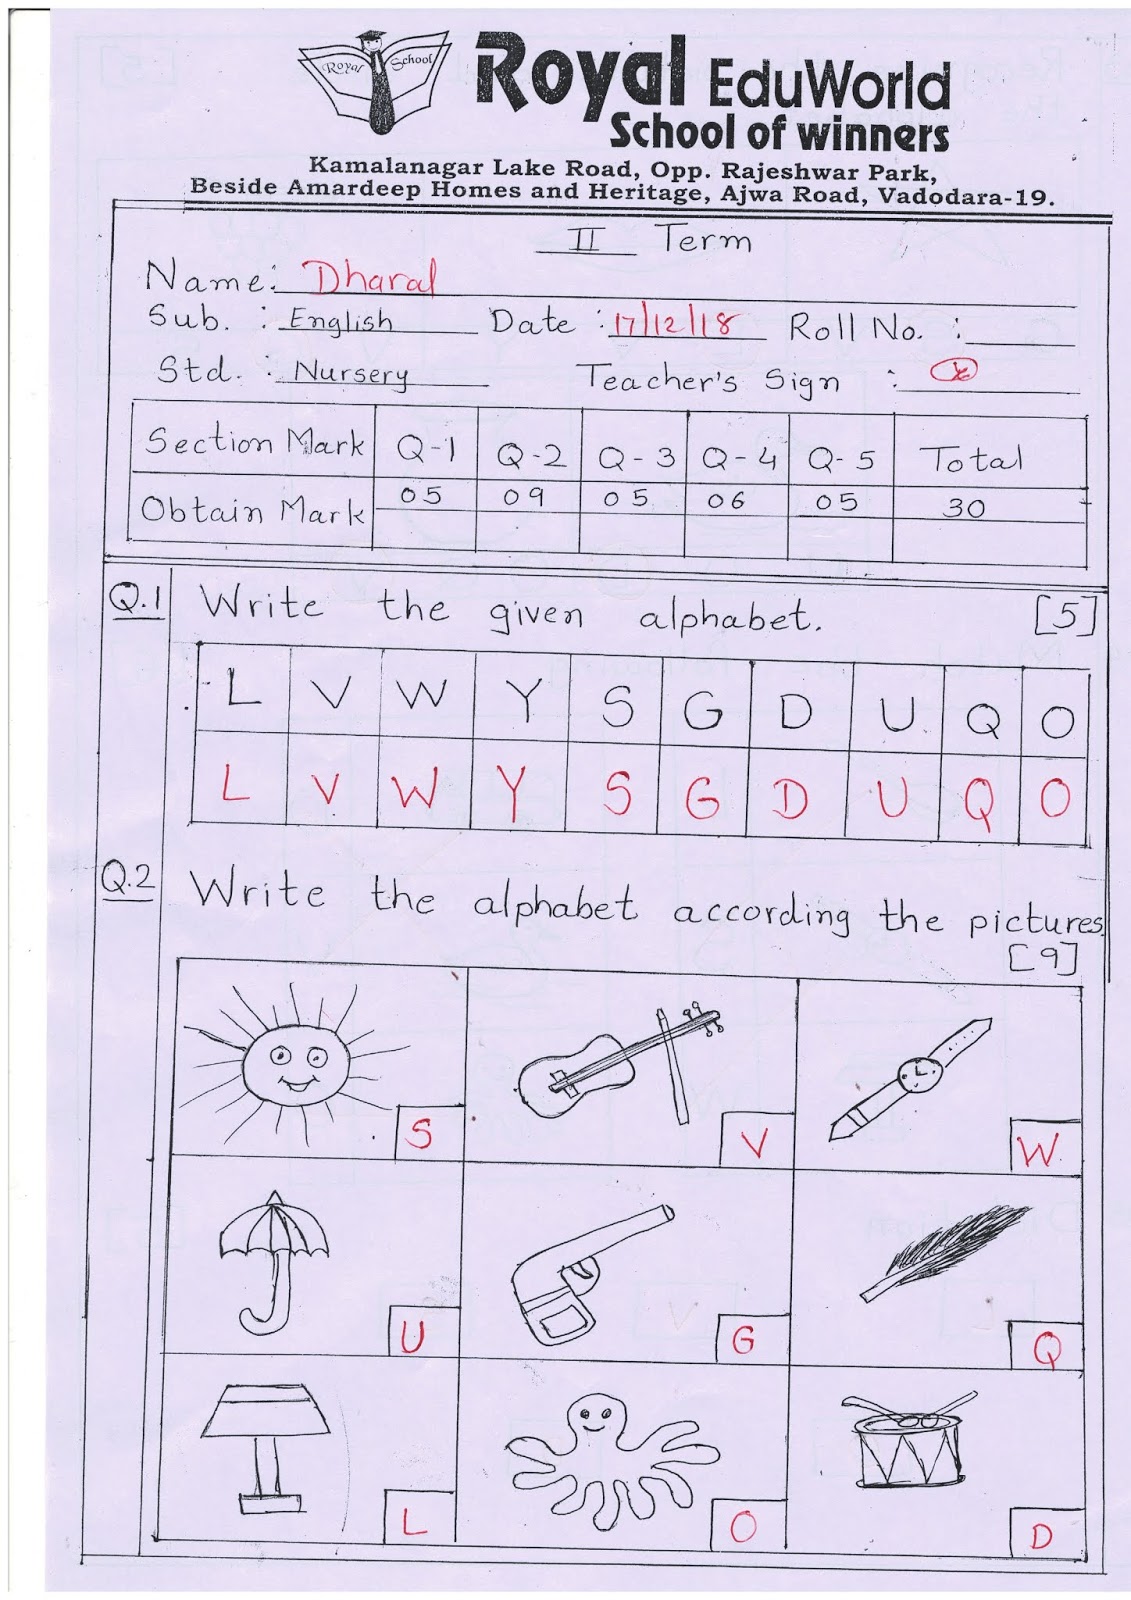 Royal School
Royal EduWorld
School of winners
Kamalanagar Lake Road, Opp. Rajeshwar Park,
Beside Amardeep Homes and Heritage, Ajwa Road, Vadodara-19.
II Term
Name: Dharal
Sub. : English Date : 17/12/18 Roll No. :
Std. : Nursery Teacher's Sign :
Section Mark Q-1 Q-2 Q-3 Q-4 Q-5 Total
Obtain Mark 05 09 05 06 05 30
Q.1 Write the given alphabet. [5]
L V W Y S G D U Q O
L V W Y S G D U Q O
Q.2 Write the alphabet according the pictures.
[9]
S V W
U G Q
L O D